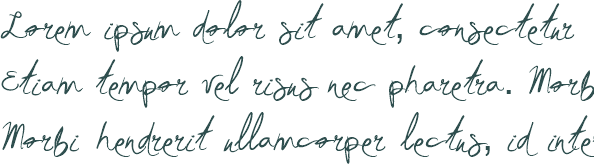 Lorem ipsum dolor sit amet, consectetur
Etiam tempor vel risus nec pharetra. Morb
Morbi hendrerit ullamcorper lectus, id inter